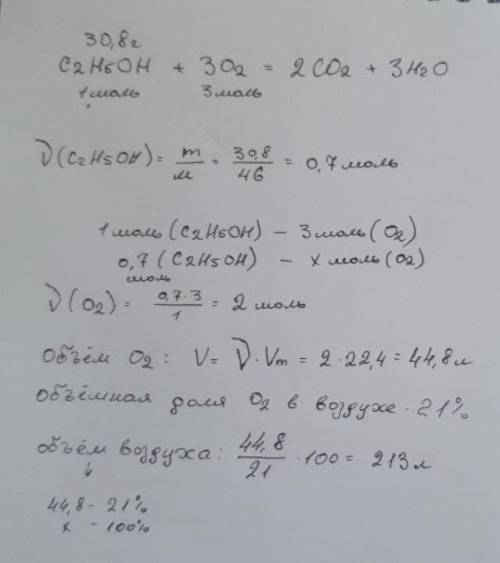 30,8г
C2H5OH + 3O2 = 2CO2 + 3H2O
1моль 3моль
ν(C2H5OH) = m/M = 30,8/46 = 0,7 моль
1моль (C2H5OH) – 3моль (O2)
0,7 (C2H5OH) – x моль (O2)
моль
ν(O2) = 0,7·3/1 = 2 моль
Объём O2 : V = ν·Vm = 2·22,4 = 44,8 л
Объёмная доля O2 в воздухе · 21%
объём воздуха : 44,8/21 · 100 = 213 л
↓
44,8 – 21%
x – 100%